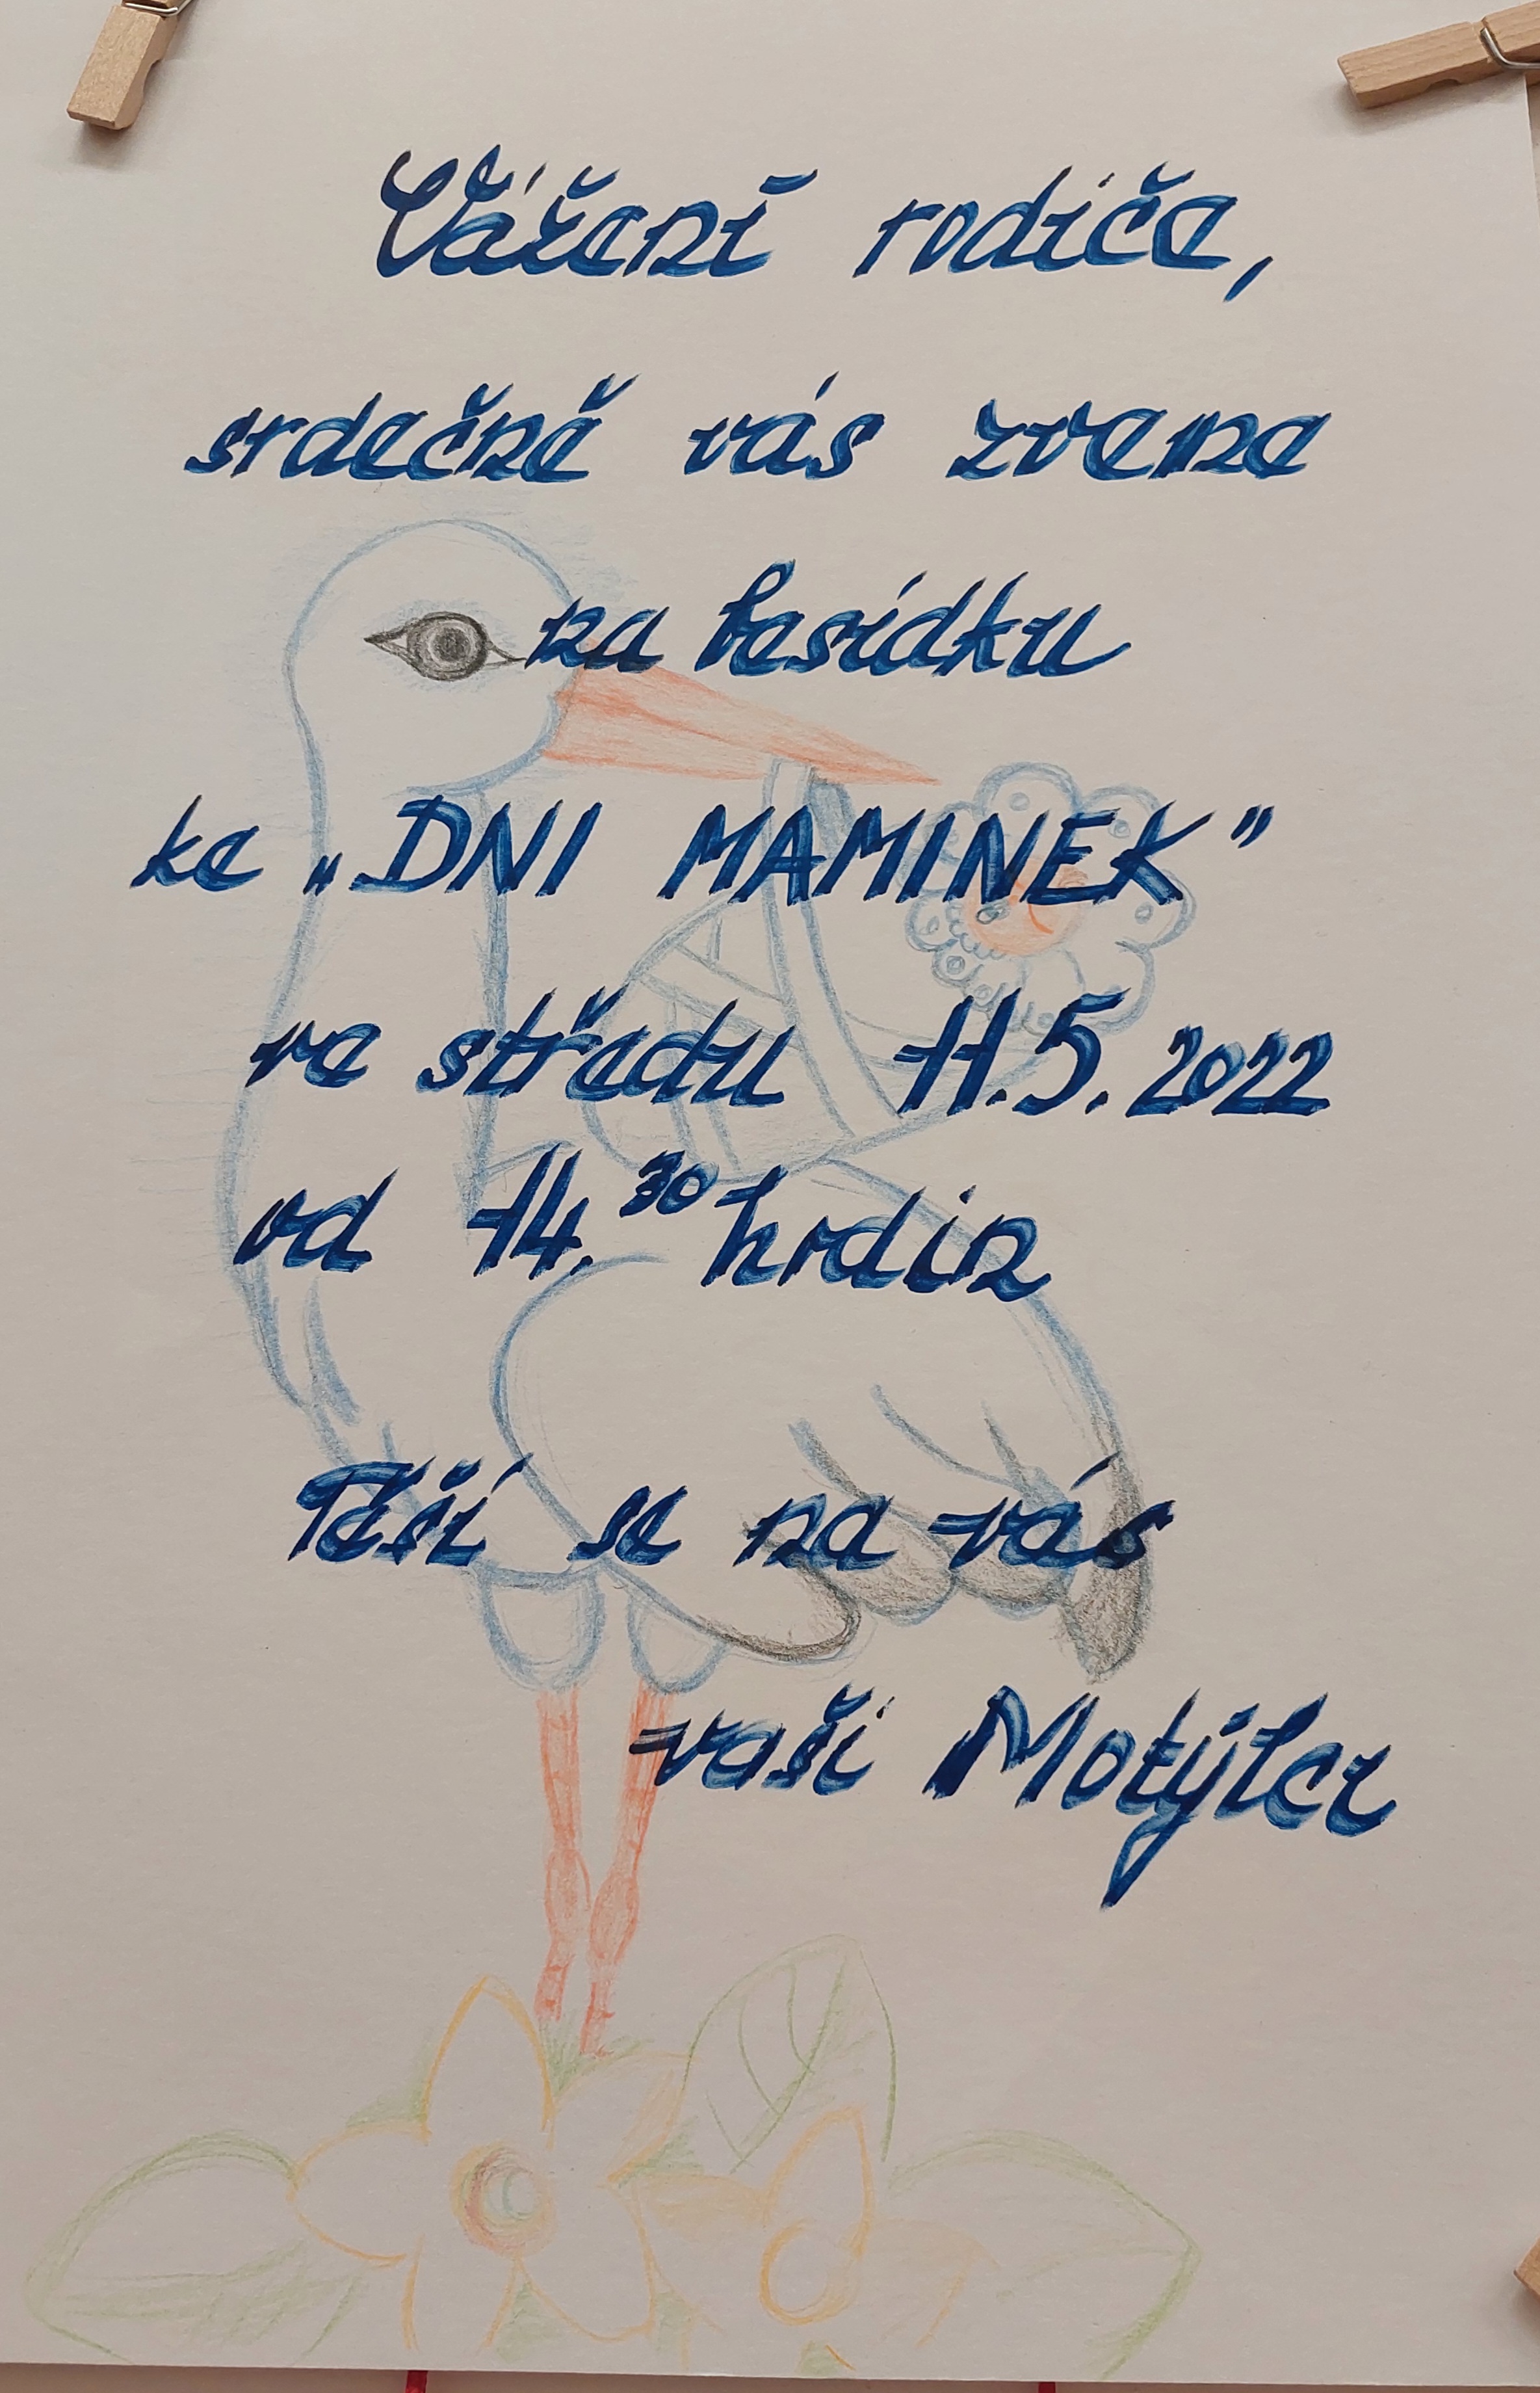 Vážení rodiče,
srdečně vás zveme
na besídku
ke „DNI MAMINEK"
ve středu 11.5.2022
od 14.30 hodin
Těší se na vás
vaši Motýlci